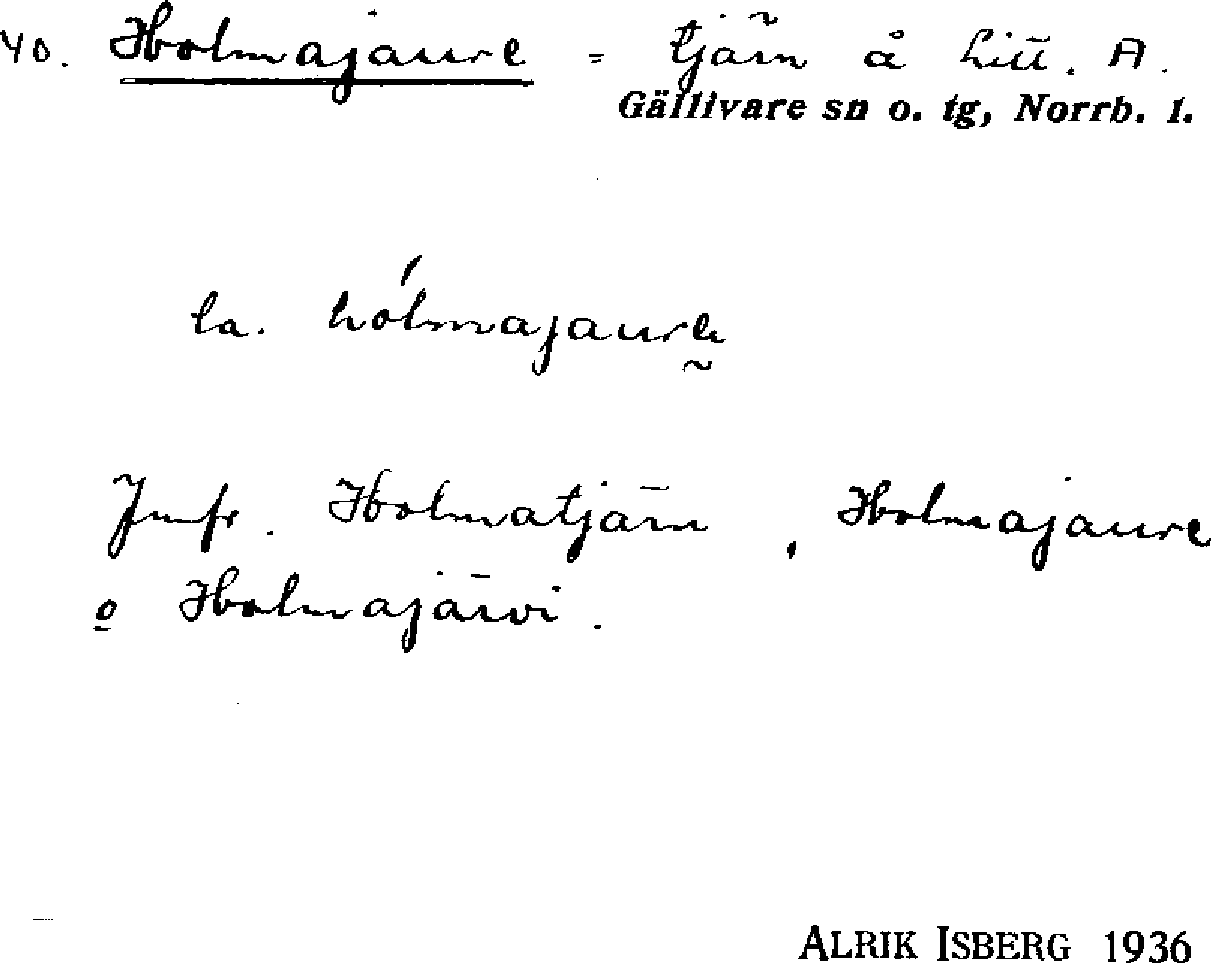 40. Holmajaure = tjärn å Litt. A.
Gällivare sn o. tg, Norrb. l.
la. hólmajaure
Jmfr. Holmatjärn, Holmajaure
o Holmajärvi.
ALRIK ISBERG 1936